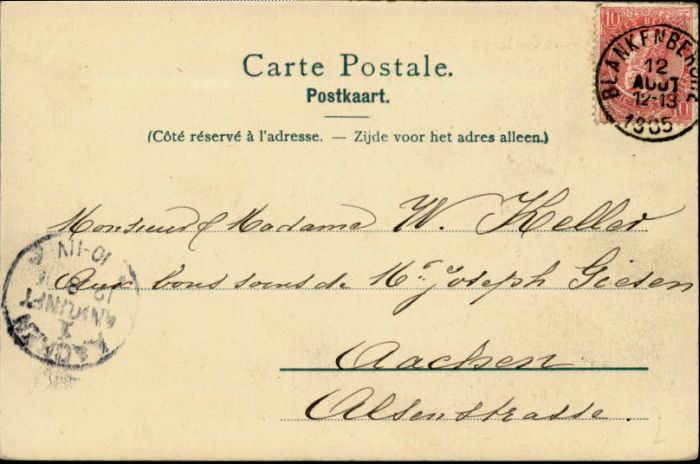 Carte Postale.
Postkaart.
(Côté réservé à l'adresse. — Zijde voor het adres alleen.)
10 10
BLANKENBERGHE
12
AOUT
12-13
1905
Monsieur & Madame W. Keller
Aux bons soins de Mr. Joseph Giesen
Aachen
Alsenstrasse.
AACHEN
1
ANKUNFT
12 8